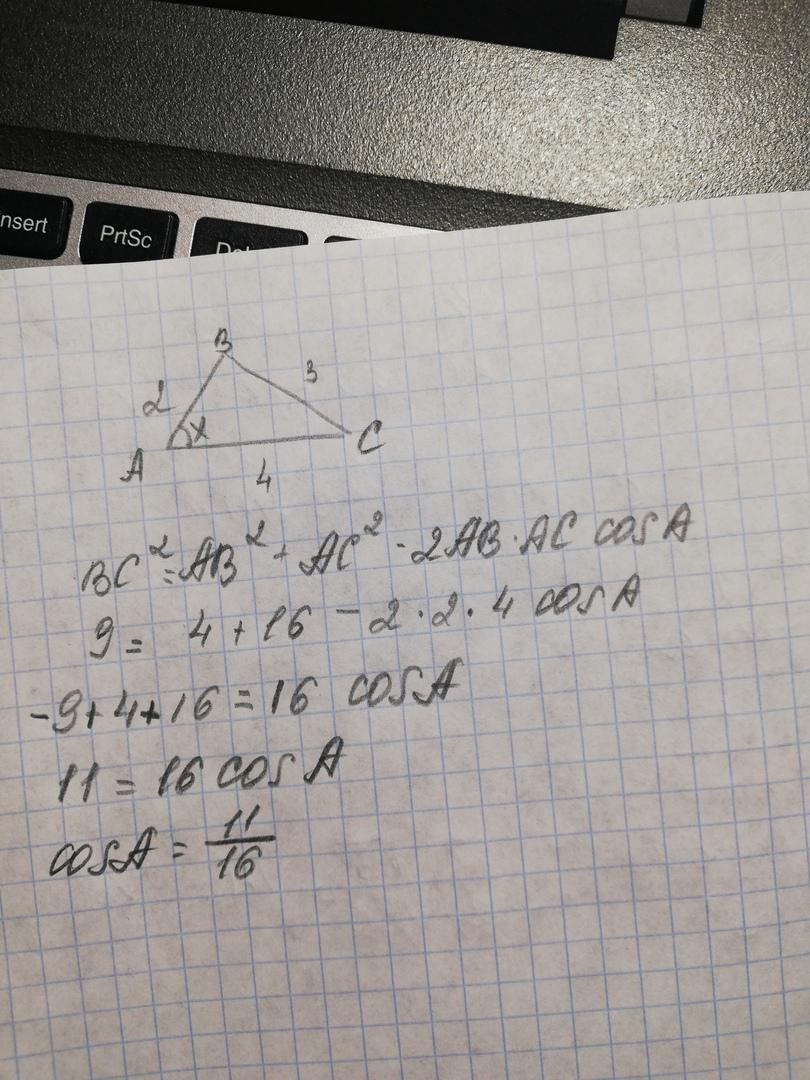 nsert
PrtSc
B
2
3
x
A
C
4
BC² = AB² + AC² - 2AB · AC cos A
9 = 4 + 16 - 2 · 2 · 4 cos A
-9 + 4 + 16 = 16 cos A
11 = 16 cos A
cos A = 11/16